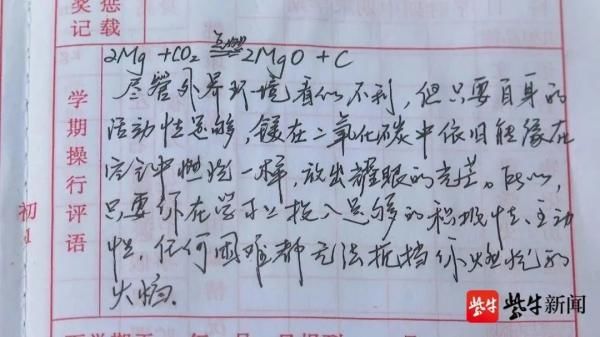 奖惩
记载
2Mg + CO₂ 点燃 2MgO + C
尽管外界环境看似不利，但只要自身的
活动性足够，镁在二氧化碳中依旧能像在
空气中燃烧一样，放出耀眼的光芒。所以，
只要你在学习上投入足够的积极性、主动
性，任何困难都无法抵挡你燃烧的
火焰。
初1
学期操行评语
紫牛 紫牛新闻